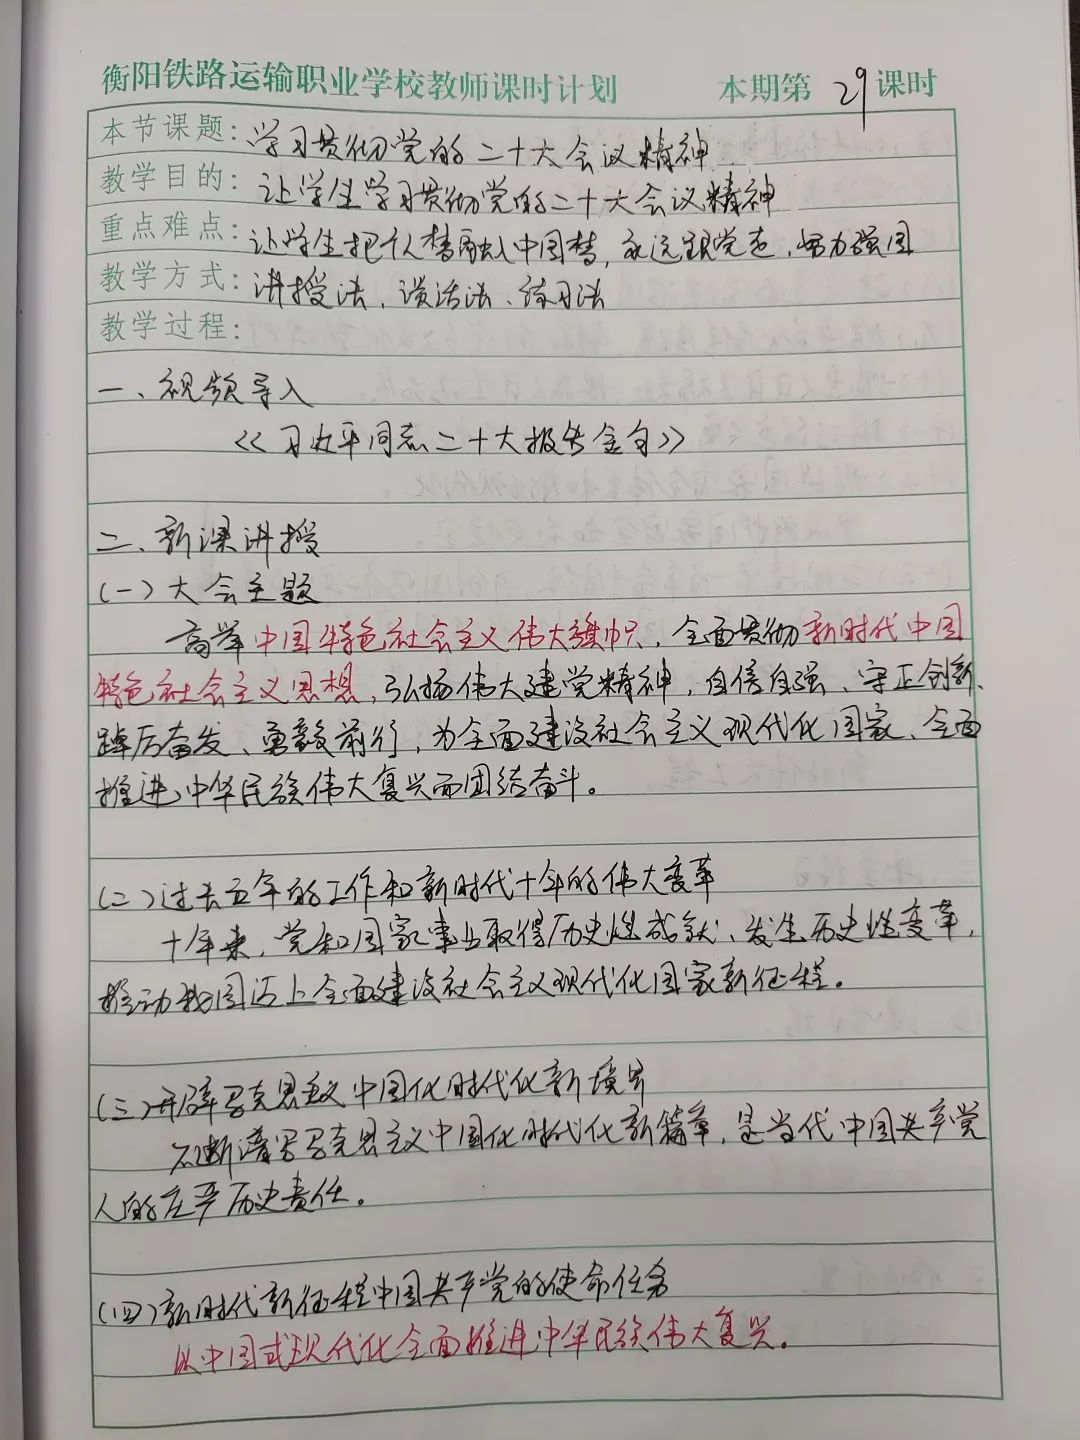 衡阳铁路运输职业学校教师课时计划 本期第 29 课时
本节课题：学习贯彻党的二十大会议精神
教学目的：让学生学习贯彻党的二十大会议精神
重点难点：让学生把个人梦融入中国梦，永远跟党走，努力强国
教学方式：讲授法、谈话法、练习法
教学过程：
一、视频导入
《习近平同志二十大报告金句》
二、新课讲授
(一)大会主题
高举中国特色社会主义伟大旗帜，全面贯彻新时代中国
特色社会主义思想，弘扬伟大建党精神，自信自强、守正创新、
踔厉奋发、勇毅前行，为全面建设社会主义现代化国家、全面
推进中华民族伟大复兴而团结奋斗。
(二)过去五年的工作和新时代十年的伟大变革
十年来，党和国家事业取得历史性成就、发生历史性变革，
推动我国迈上全面建设社会主义现代化国家新征程。
(三)开辟马克思主义中国化时代化新境界
不断谱写马克思主义中国化时代化新篇章，是当代中国共产党
人的庄严历史责任。
(四)新时代新征程中国共产党的使命任务
以中国式现代化全面推进中华民族伟大复兴。